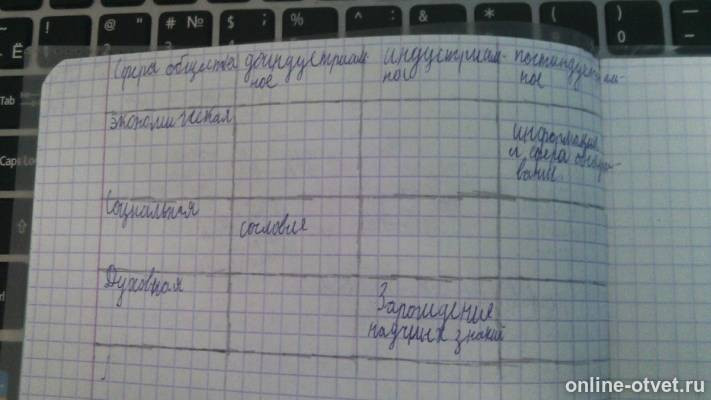 Сфера общества доиндустриаль- индустриаль- постиндустриаль-
ное ное ное
экономическая
информация
и сфера обслужи-
вания.
Социальная
сословия
Духовная
Зарождения
научных знаний
Tab
Caps Lo
Ё ! @ " # № $ ; % ^ : & * ( )
0
online-otvet.ru